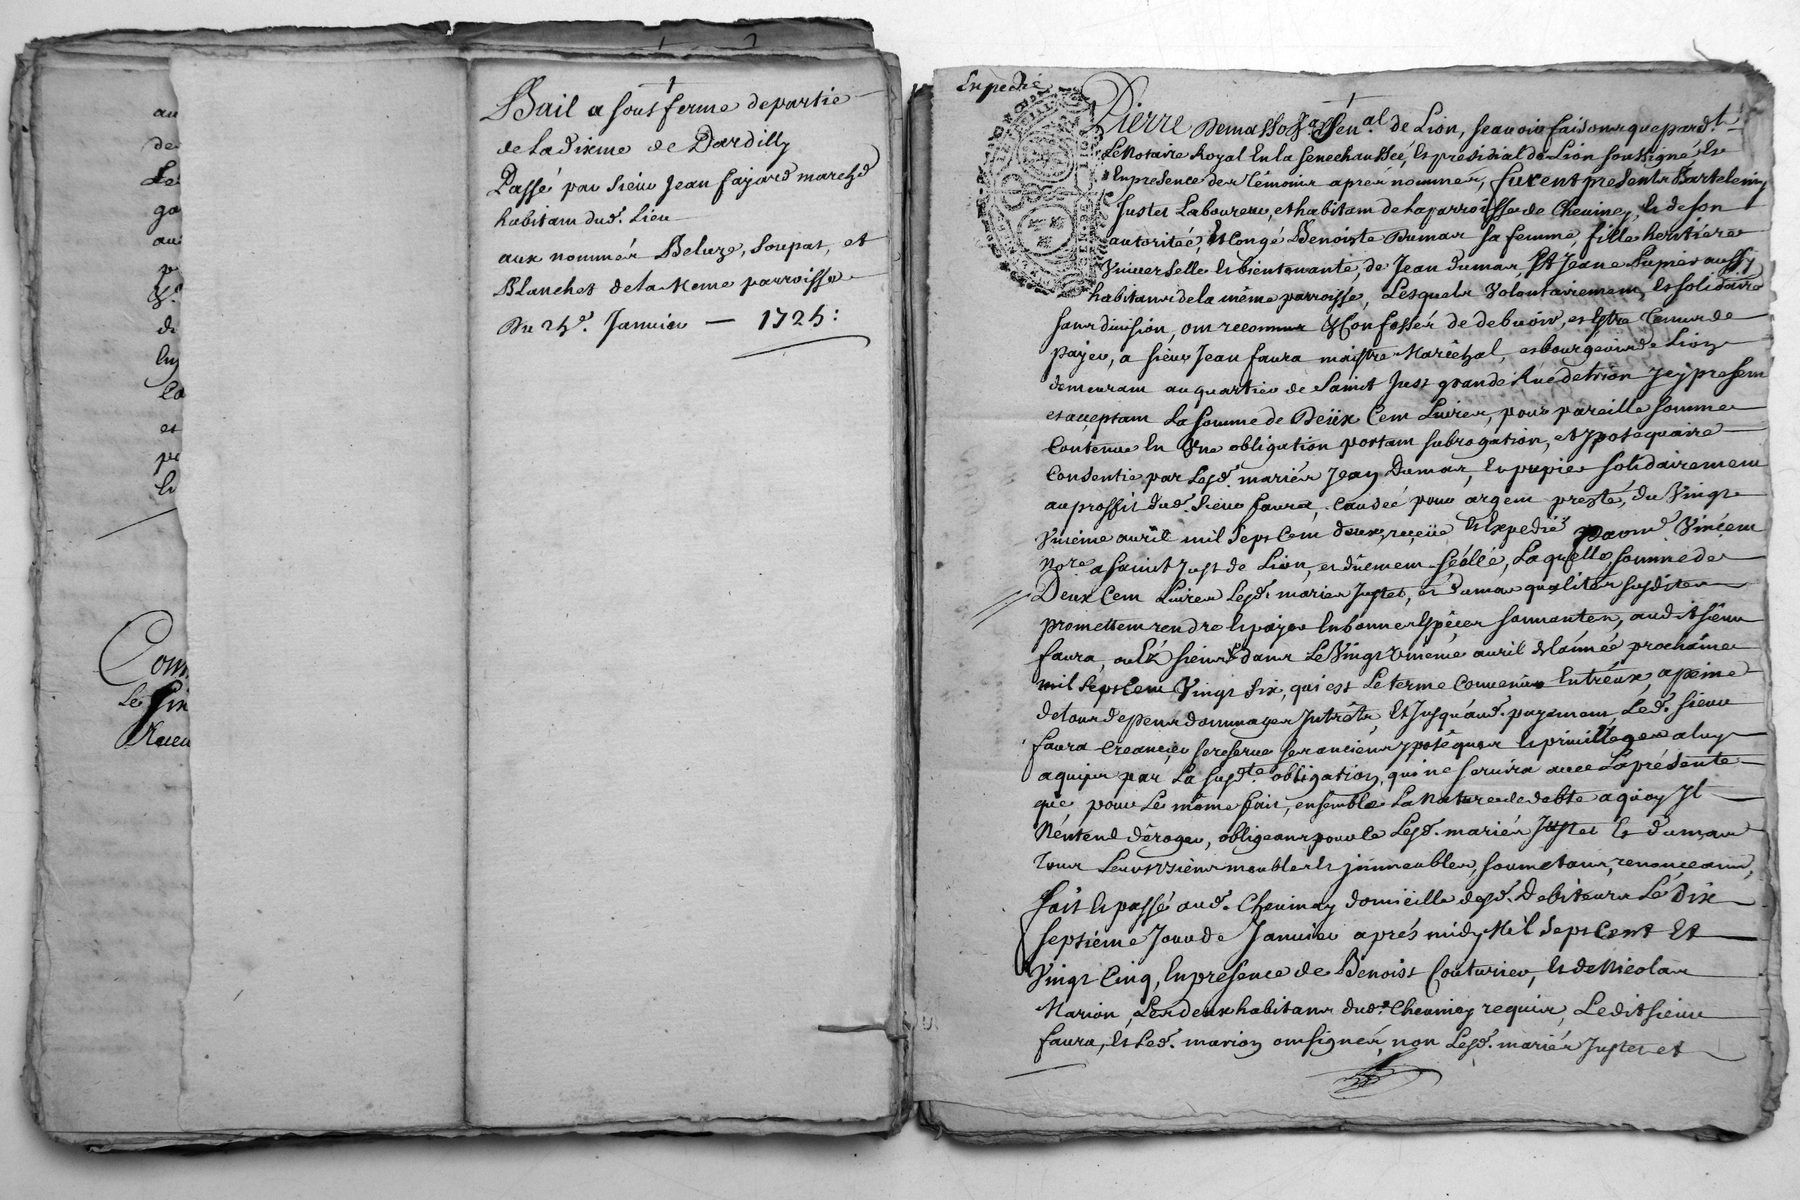 au
de
Le
ga
au
p
d
Luy
Ca
et
pr
Li
Com
Le Sin
Bail a sous ferme de partie
de la dixme de Dardilly
Passé par sieur Jean fajard march.d
habitant dud. Lieu
aux nommés Beluze, Soupat, et
Blanchet de la meme parroisse
Du 25e. Janvier — 1725:
Expedié
Pierre Demasso Sen.al de Lion, scavoir faisons que pard.t
Le Notaire Royal En la senechaussée, et presidial de Lion soussigné et
En presence des témoins aprés nommes, furent presents Bartelemy
Justet Laboureur, et habitant de la parroisse de Chevinay, et de son
autoritée, et Congé Benoiste Dumas sa femme, fille heritiere
Universelle et bientenante, de Jean dumas, Et Jeane Dupres aussy
habitants de la même parroisse, Lesquels Volontairement, et solidaire
sans division, ont reconnus & Confessés de debvoir, et Estre tenus de
payer, a sieur Jean faura maistre Maréchal, et bourgeois de Lion
demeurant au quartier de Saint Just grande Rue de trion Jcy present
et acceptant La somme de Deux Cent Livres, pour pareille somme
Contenue En Une obligation portant subrogation, et ypotequaire
Consentie par Lesd. mariés Jean Dumas, et pupier solidairement
au proffit dud. sieur faura, causée pour argent presté, du Vingt
Unième avril mil Sept Cent deux, reçüe et Expedié par m.e Vincent
No.re a saint Just de Lion, et düement scéllé, Laquelle somme de
Deux Cent Livres Lesd. mariés Justet, et dumas qualités susdites
promettent rendre et payer En bonnes Espêces sonnantes, audit sieur
faura, ou Ez siens dans Le Vingt Unième avril de L'année prochaine
mil Sept Cent Vingt Six, qui est Le terme Convenu Entréux, a peine
de tous depens dommages Jntrêts, Et Jusqu'aud. payement, Led. sieur
faura Creancier se reserve ses anciens ypotêques et privilléges a luy
aquises par La susd.te obligation, qui ne servira avec La présente
que pour Le même fait, ensemble La Nature de debte a quoy Jl
N'entend déroger, obligeants pour ce Lesd. mariés Justet et dumas
tous Leurs biens meubles et jmmeubles, soumetans, renonceans,
fait et passé aud. Chevinay domicille desd. Debiteurs Le Dix
septiême Jour de Janvier aprés midy Mil Sept Cent Et
Vingt Cinq, En presence de Benoist Couturier, et de Nicolas
Marion, Les deux habitans dud. Chevinay requis, Ledit sieur
faura, et Led. marion ont signés, non Lesd. mariés Justet et